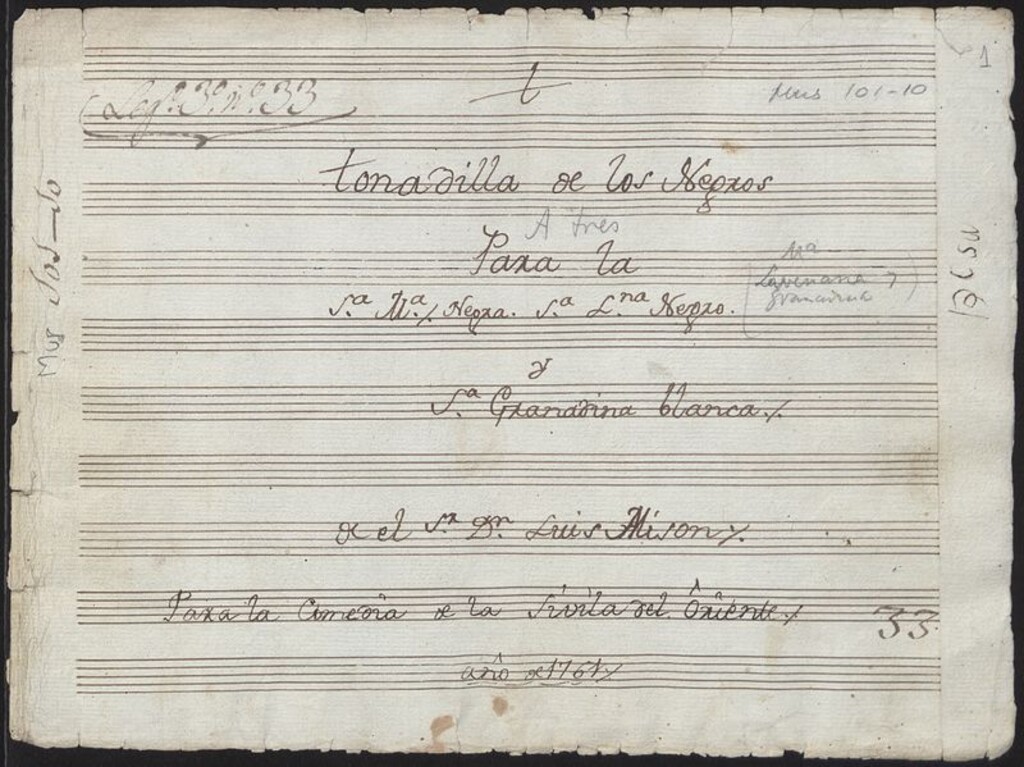 1
Legº. 3º. nº. 33
t
Mus 101-10
tonadilla de los Negros
A tres
Para la
Mª
Ladvenana y
granadina
S.ª M.ª/. Negra. S.ª L.na Negro.
y
S.ª Granadina blanca./.
de el S.r D.n Luis Mison/.
Para la Comedia de la Sivila del Oriente./.
33
año de 1761/.
Mus 101-10